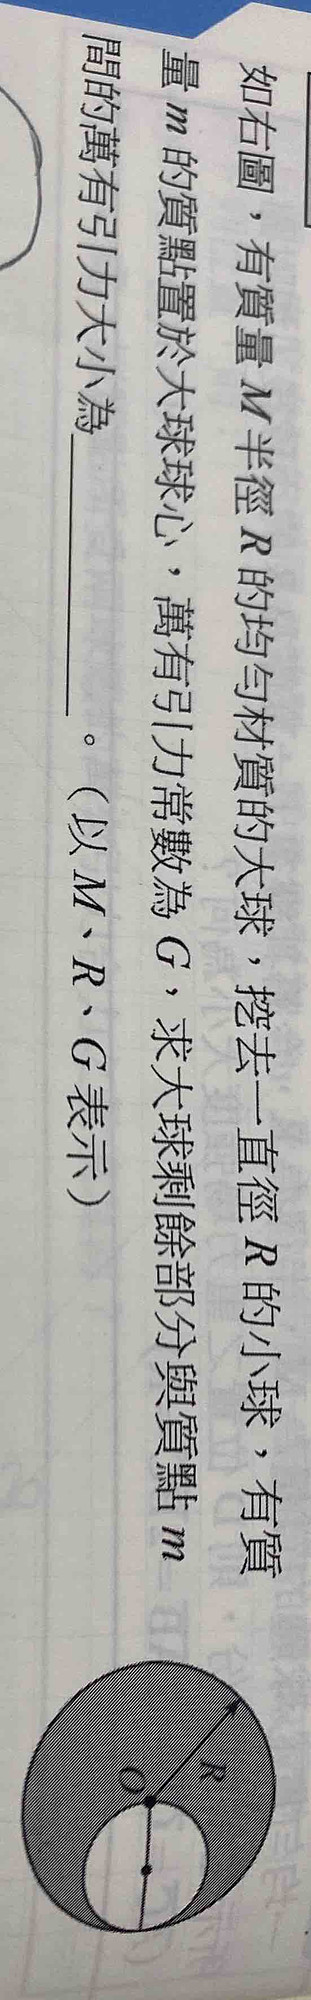 如右圖，有質量 M 半徑 R 的均勻材質的大球，挖去一直徑 R 的小球，有質
量 m 的質點置於大球球心，萬有引力常數為 G，求大球剩餘部分與質點 m
間的萬有引力大小為________。（以 M、R、G 表示）
R
O